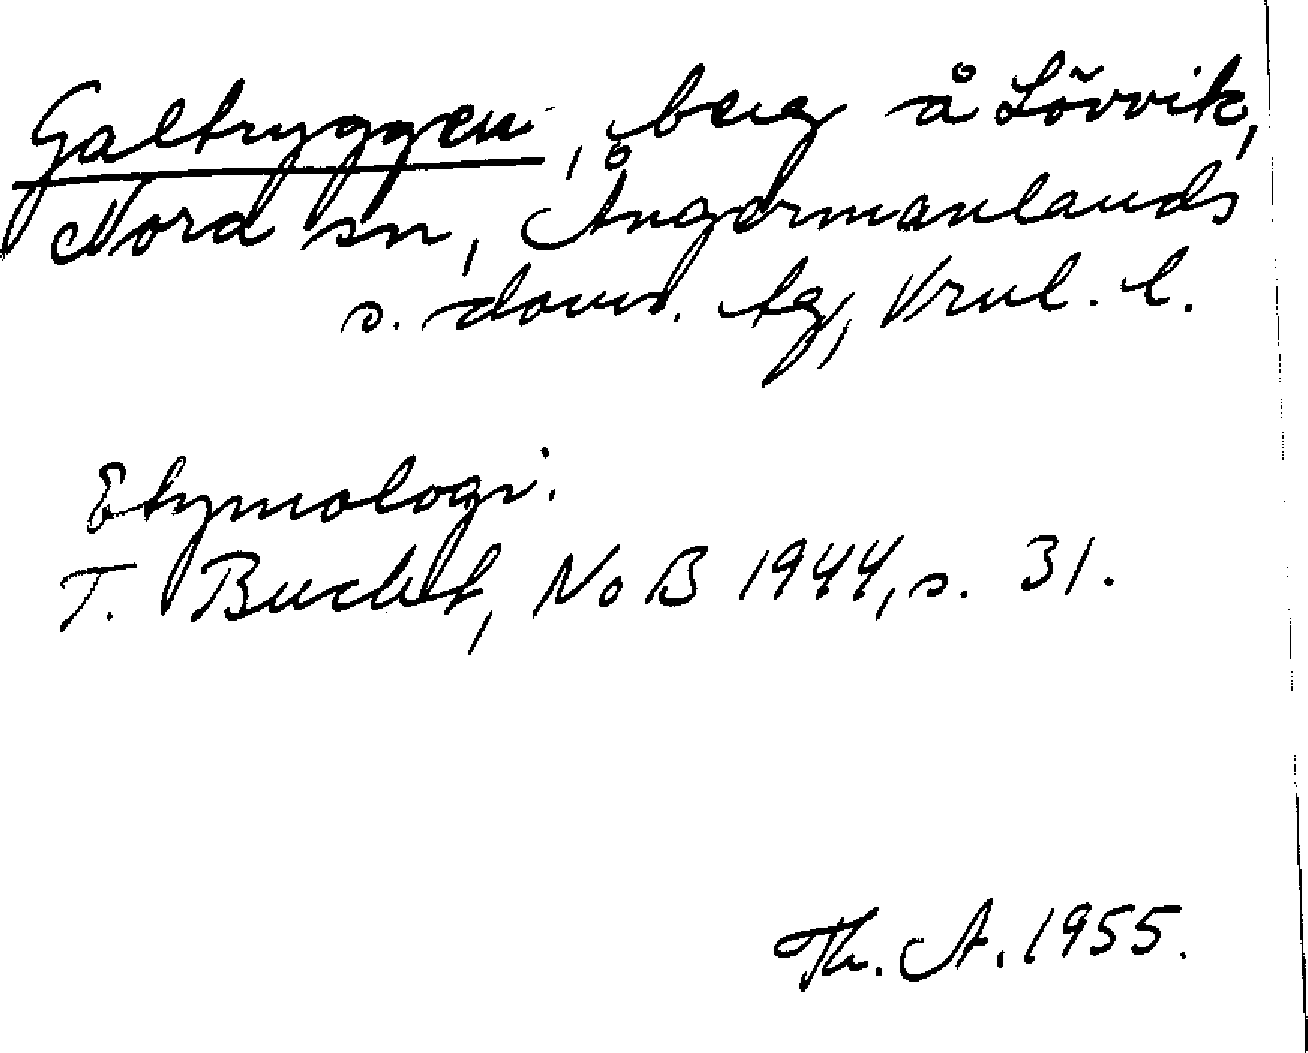 Galtryggen, berg å Lövvik,
Nord sn, Ångermanlands
s. doms. tg, Vrnl. l.
Etymologi.
T. Bucht, NoB 1944, s. 31.
Th. A. 1955.